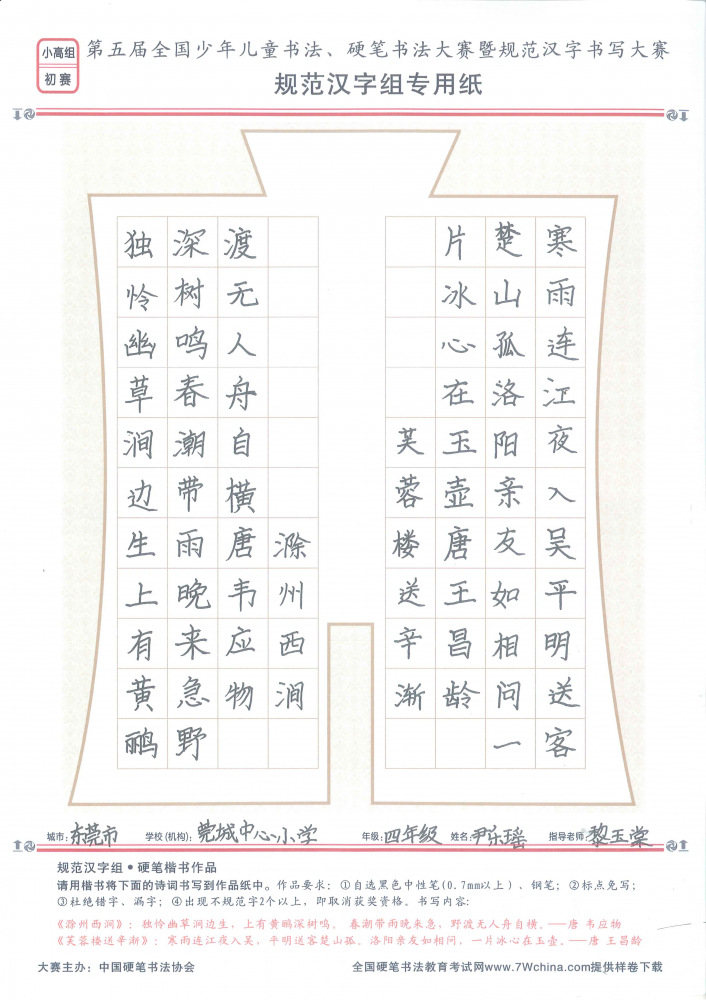 小高组
初赛
第五届全国少年儿童书法、硬笔书法大赛暨规范汉字书写大赛
规范汉字组专用纸
寒雨连江夜入吴平明送客
楚山孤洛阳亲友如相问一
片冰心在玉壶唐王昌龄
芙蓉楼送辛渐
独怜幽草涧边生上有黄鹂
深树鸣春潮带雨晚来急野
渡无人舟自横唐韦应物
滁州西涧
城市：东莞市 学校(机构)：莞城中心小学 年级：四年级 姓名：尹乐瑶 指导老师：黎玉棠
规范汉字组 • 硬笔楷书作品
请用楷书将下面的诗词书写到作品纸中。作品要求：①自选黑色中性笔(0.7mm以上）、钢笔；②标点免写；
③杜绝错字、漏字；④出现不规范字2个以上，即取消获奖资格。书写内容：
《滁州西涧》：独怜幽草涧边生，上有黄鹂深树鸣。 春潮带雨晚来急，野渡无人舟自横。——唐 韦应物
《芙蓉楼送辛渐》：寒雨连江夜入吴，平明送客楚山孤。洛阳亲友如相问，一片冰心在玉壶。——唐 王昌龄
大赛主办：中国硬笔书法协会 全国硬笔书法教育考试网www.7Wchina.com提供样卷下载